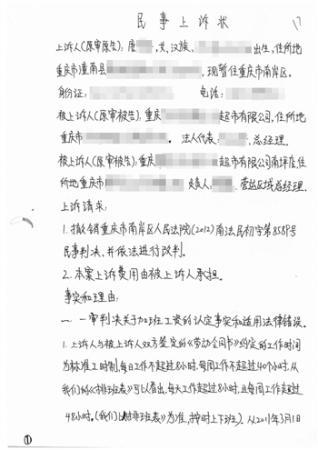 民事上诉状
17
上诉人(原审原告):唐 ,女,汉族, 出生,住所地
重庆市潼南县 ,现暂住重庆市南岸区。
身份证: 电话:
被上诉人(原审被告):重庆 超市有限公司,住所地
重庆市 。法人代表: ,总经理。
被上诉人(原审被告):重庆 超市有限公司南坪店,住
所地重庆市 负责人: 营运区域总经理。
上诉请求:
1.撤销重庆市南岸区人民法院(2012)南法民初字第8589号
民事判决,并依法进行改判。
2.本案上诉费用由被上诉人承担。
事实和理由:
一、一审判决关于加班工资的认定事实和适用法律错误。
1.上诉人与被上诉人双方签定的《劳动合同书》约定的工作时间
为标准工时制,每日工作不超过8小时,每周工作不超过40个小时,从
我们的《排班表》可以看出,每天工作超过8小时,且每周工作超过
48小时。(我们以排班表为准,按时上下班)。从2011年3月1
①